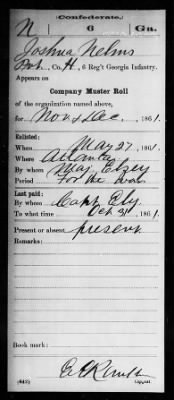 Confederate.
N 6 Ga.
Joshua Nelms
Pvt., Co. H, 6 Reg't Georgia Infantry.
Appears on
Company Muster Roll
of the organization named above,
for Nov & Dec, 1861.
Enlisted:
When May 27, 1861.
Where Atlanta
By whom Maj. Elzey
Period For the war
Last paid:
By whom Capt. Ely
To what time Oct 31, 1861.
Present or absent present
Remarks:
Book mark:
(642)
Copyist.